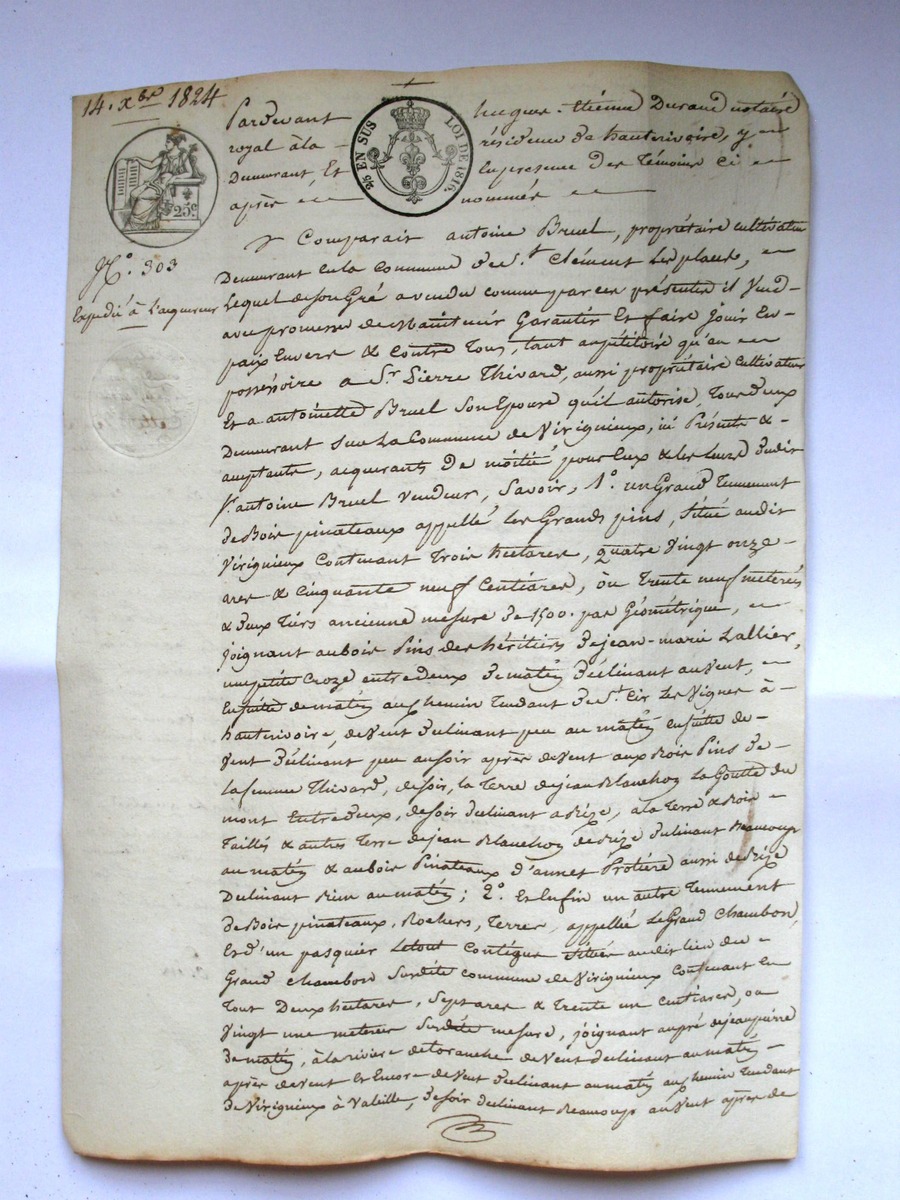 14. Xbre 1824
Pardevant Jacques-Etienne Durand notaire
royal à la résidence de hauterivoire, y en
Demeurant, Et En présence des Temoins ci en
après nommés
25 EN SUS LOI DE 1816.
25c
N.° 303
Expédié à l'acquereur
Comparait antoine Bruel, propriétaire cultivateur
Demeurant en la Commune de St. Clément les places,
Lequel de son Gré a vendu comme par ces présentes il Vend
avec promesse de Maintenir Garantir Et faire Jouir En
paix Envers & Contre Tous, tant au pétitoire qu'au
possessoire a Sr. Pierre Thivard, aussi propriétaire cultivateur
Et a antoinette Bruel Son Epouse qu'il autorise, Tous deux
Demeurant sur La Commune de Virigneux, ici Présents &
acceptants, acquerants de moitié pour Eux & les leurs dudit
Sr. antoine Bruel vendeur, Savoir, 1.° un Grand Tennement
de Bois pinateaux appellé les Grands pins, Situé audit
Virigneux Contenant Trois hectares, quatre vingt onze
ares & Cinquante neuf Centiares, ou Trente neuf meterées
& deux Tiers ancienne mesure de 1500. pas Géométrique,
Joignant au bois Pins des héritiers de jean-marie Lallier
une petite Croze entre deux de matin déclinant au Vent,
Ensuitte de matin au chemin Tendant de St. Cir Les Vignes à
hauterivoire, de Vent declinant peu au matin ensuitte de
Vent déclinant peu au soir après de Vent aux Bois Pins de
La femme Thivard, de soir, la Terre de jean Blanchon La Goutte du
mont Entre deux, de soir declinant a Bize, a la Terre & Bois
Taillés & autres Terre de jean Blanchon de Bize declinant Beaucoup
au matin & au bois Pinateaux d'annet Protière aussi de Bize
Declinant Rien au matin; 2.° Et Enfin un autre Tennement
de Bois pinateaux, Rochers, Terres, appellé Le Grand Chambon,
Et d'un pasquier Letout Contigus Situés audit lieu du
Grand chambon Susdite commune de Virigneux Contenant En
Tout Deux hectares, Sept ares & Trente un centiares, ou
Vingt une meterées Susdite mesure, joignant au pré de jeanpierre
de matin, à la riviere de toranche de Vent declinant au matin
après de vent Et Encore de Vent declinant au matin au chemin Tendant
de Virigneux à Valeille, de soir declinant Beaucoup au Vent après de